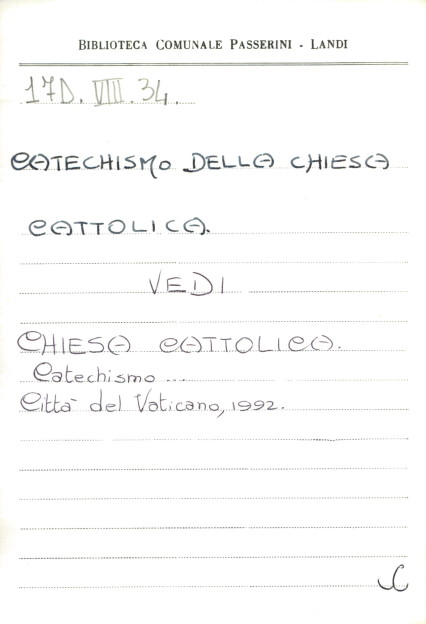 BIBLIOTECA COMUNALE PASSERINI - LANDI
17D. VIII. 34.
CATECHISMO DELLA CHIESA
CATTOLICA.
VEDI
CHIESA CATTOLICA.
Catechismo ...
Città del Vaticano, 1992.